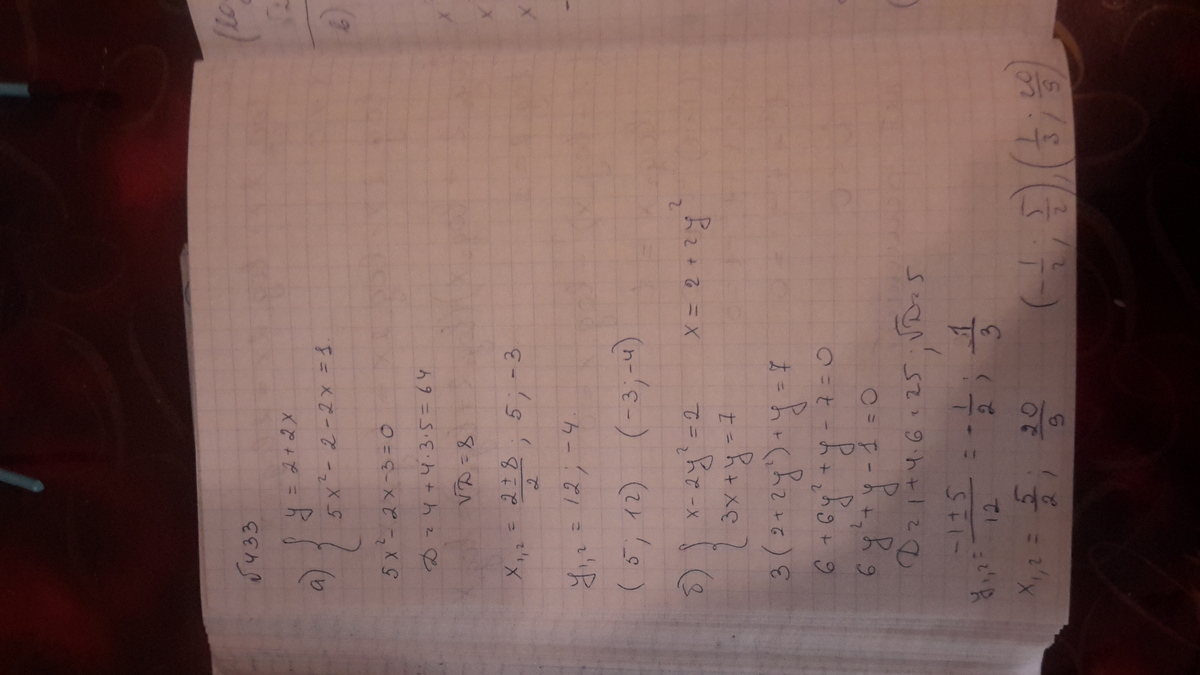 √433
а) { y = 2 + 2x
5x² - 2 - 2x = 1
5x² - 2x - 3 = 0
D = 4 + 4·3·5 = 64
√D = 8
x₁,₂ = (2 ± 8)/2 ; 5 ; -3
y₁,₂ = 12 ; -4
(5 ; 12) (-3 ; -4)
б) { x - 2y² = 2 x = 2 + 2y²
3x + y = 7
3(2 + 2y²) + y = 7
6 + 6y² + y - 7 = 0
6y² + y - 1 = 0
D = 1 + 4·6 = 25 ; √D = 5
y₁,₂ = (-1 ± 5)/12 = -1/2 ; 1/3
x₁,₂ = 5/2 ; 20/9 (-1/2 ; 5/2), (1/3 ; 20/9)